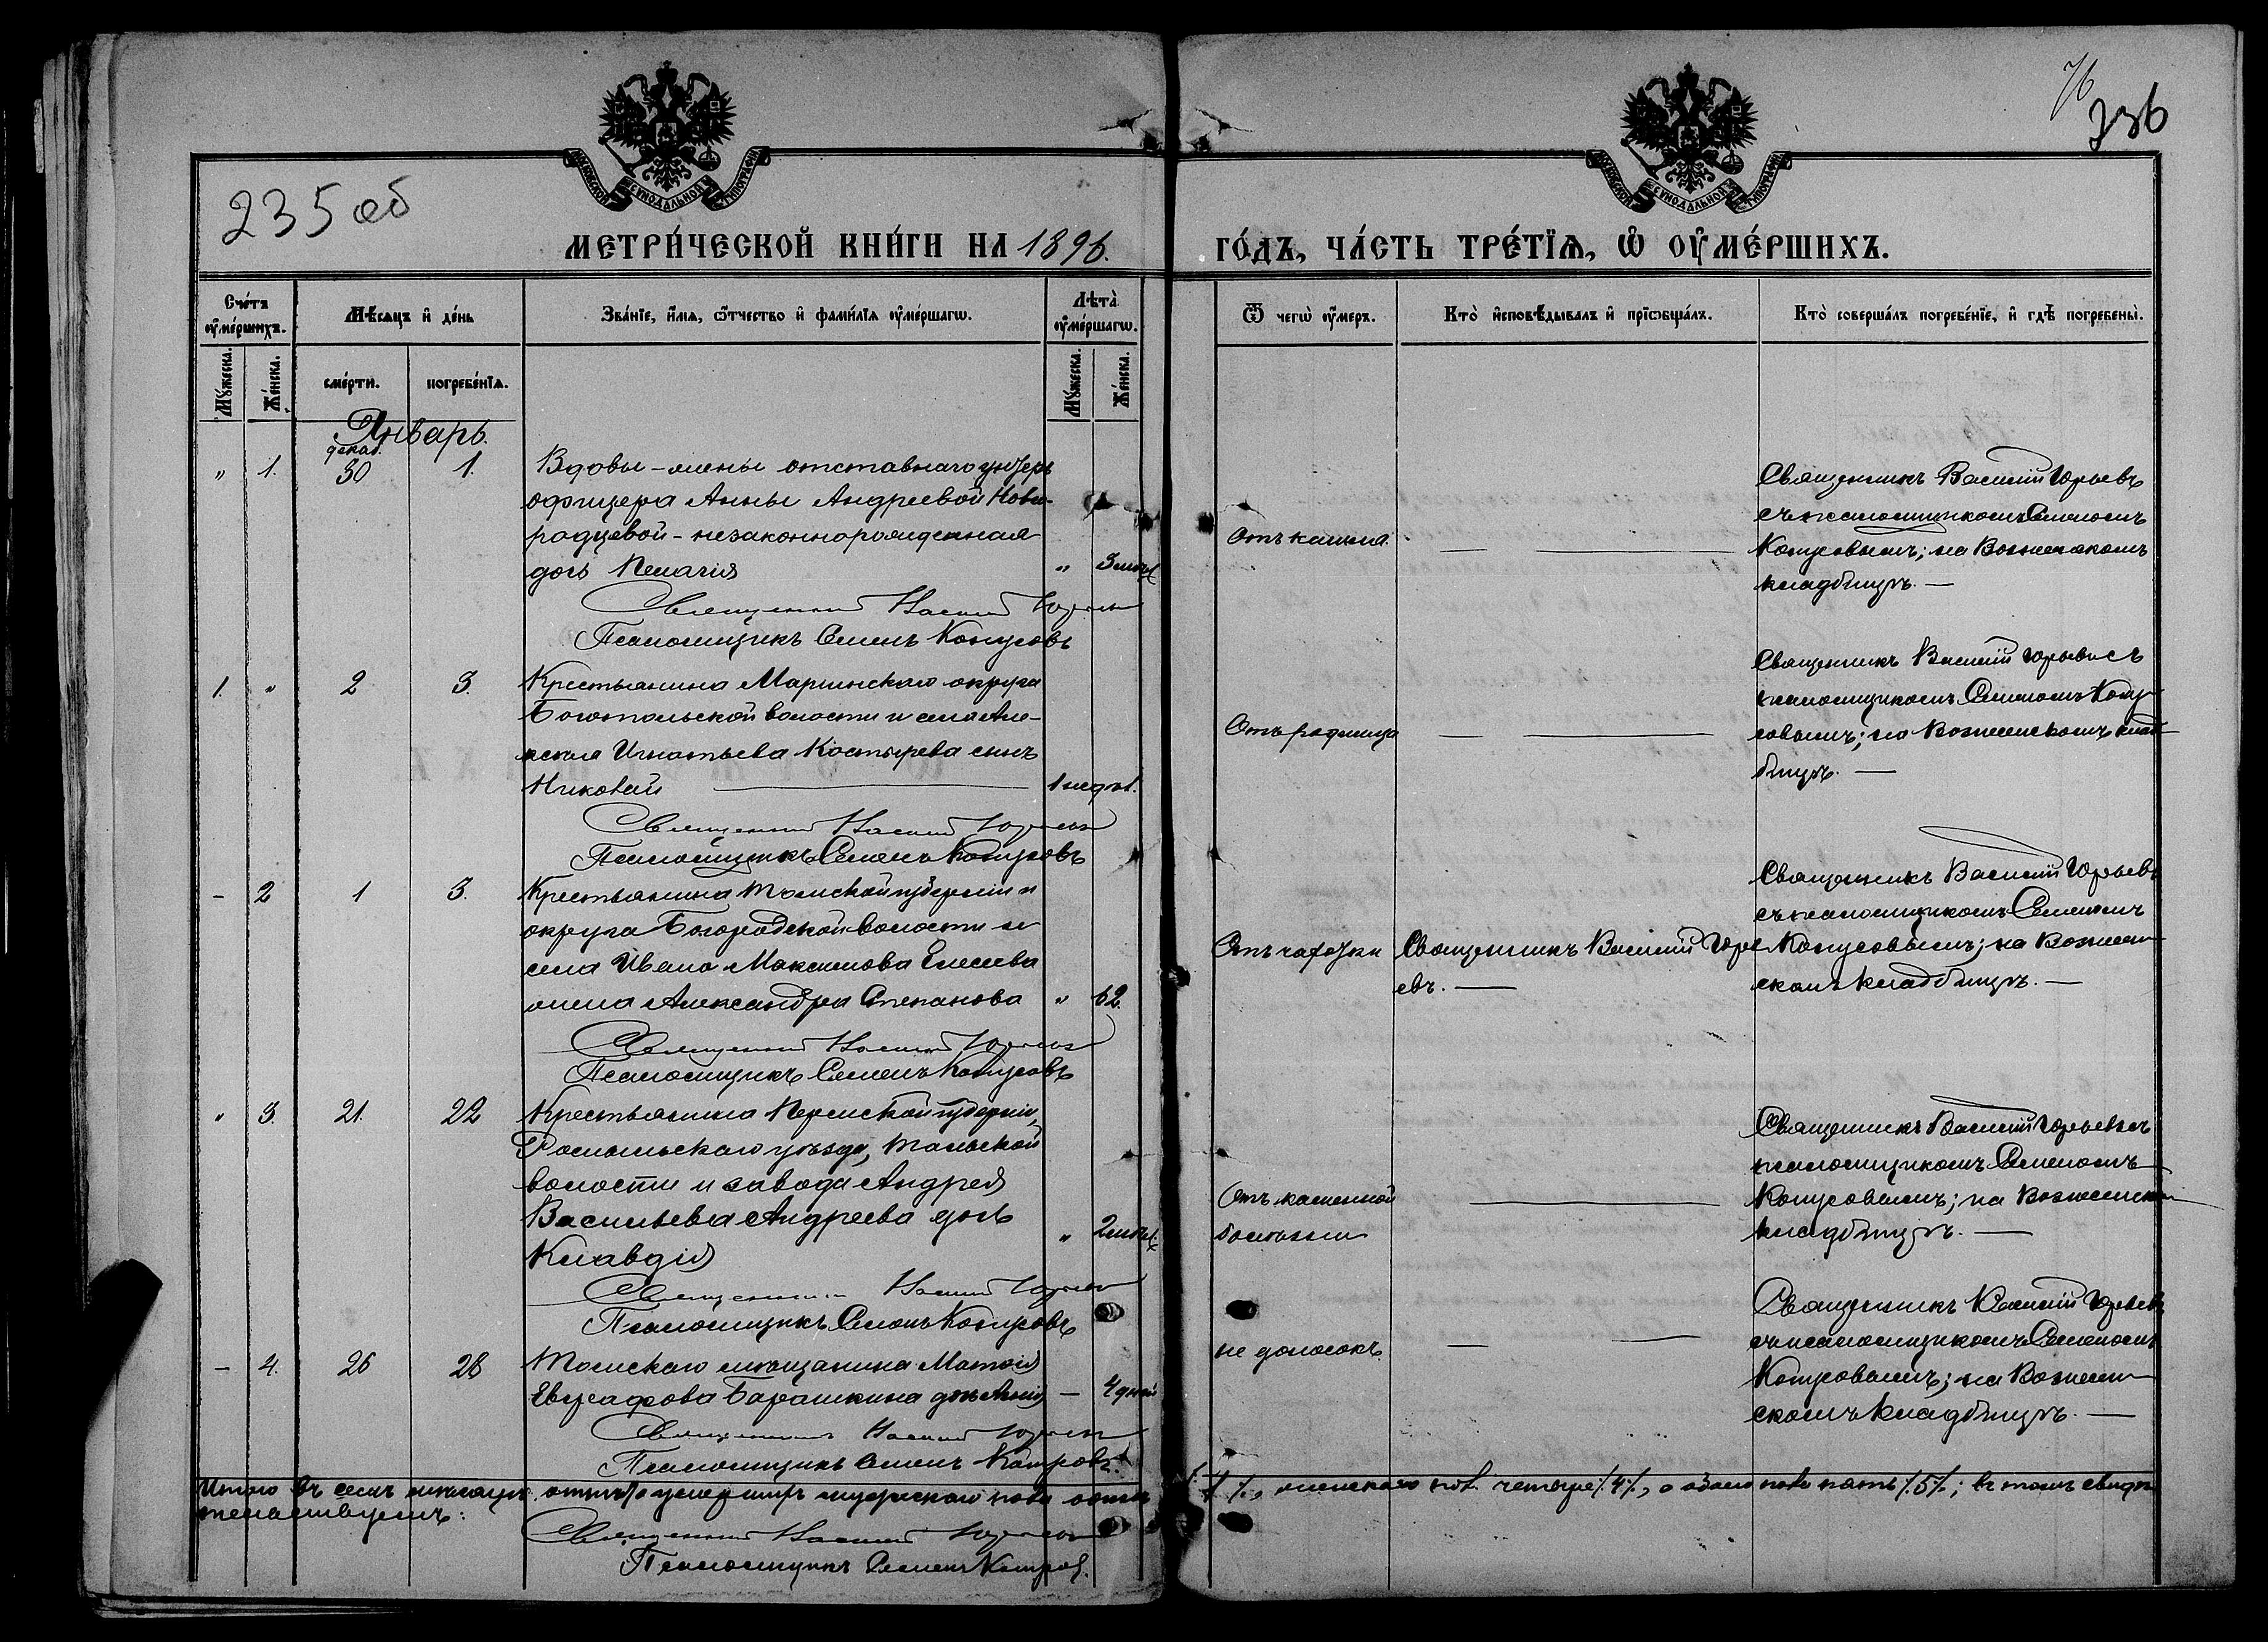 235 об
76
236
МЕТРИ́ЧЕСКОЙ КНИ́ГИ НА 1896.
ГО́ДЪ, ЧА́СТЬ ТРЕ́ТЇѦ, Ѡ҆ ОУ҆МЕ́РШИХЪ.
Сче́тъ оу҆ме́ршихъ.
Мѣ́сѧцъ и҆ де́нь
Зва́нїе, и҆́мѧ, ѻ҆́тчество и҆ фами́лїѧ оу҆ме́ршагѡ.
Лѣта̀ оу҆ме́ршагѡ.
Ѿ чегѡ̀ оу҆́меръ.
Кто̀ и҆сповѣ́дывалъ и҆ прїѻбща́лъ.
Кто̀ соверша́лъ погребе́нїе, и҆ гдѣ̀ погребены̀.
Мꙋ́жеска.
Же́нска.
сме́рти.
погребе́нїѧ.
Мꙋ́жеска.
Же́нска.
Январь.
декаб.
" 1. 30 1.
Вдовы-жены отставнаго унтеръ
офицера Анны Андреевой Ново-
родцевой - незаконнорожденная
дочь Пелагія " 3 мѣс.
Священникъ Василій Юрьевъ
Псаломщикъ Семенъ
Отъ кашля.
Священникъ Василій Юрьевъ
съ псаломщикомъ Семеномъ
на Вознесенскомъ
кладбищѣ. —
1. " 2 3.
Крестьянина Маріинскаго округа
Боготольской волости и села Але-
ксѣя Игнатьева Костырева сынъ
Николай 1 недѣл.
Священникъ Василій Юрьевъ
Псаломщикъ Семенъ
Отъ родимца
Священникъ Василій Юрьевъ съ
псаломщикомъ Семеномъ
на Вознесенскомъ клад-
бищѣ. —
- 2 1 3.
Крестьянина Томской губерніи и
округа Богородской волости и
села Ивана Максимова Елесева
жена Александра Степанова " 62.
Священникъ Василій Юрьевъ
Псаломщикъ Семенъ
Отъ чахотки
Священникъ Василій Юрь-
евъ. —
Священникъ Василій Юрьевъ
съ псаломщикомъ Семеномъ
на Вознесен-
скомъ кладбищѣ. —
" 3. 21. 22
Крестьянина Пермской губерніи,
уѣзда,
волости и завода Андрея
Васильева Андреева дочь
Клавдія " 2 мѣс.
Священникъ Василій Юрьевъ
Псаломщикъ Семенъ
Отъ
болѣзни
Священникъ Василій Юрьевъ съ
псаломщикомъ Семеномъ
на Вознесенском
кладбищѣ. —
- 4. 26 28
Томскаго мѣщанина Матѳія
Евграфова Барашкина дочь — 4 дней
Священникъ Василій Юрьевъ
Псаломщикъ Семенъ
не доносокъ.
Священникъ Василій Юрьевъ
съ псаломщикомъ Семеномъ
на Вознесен-
скомъ кладбищѣ. —
Итого въ семъ мѣсяцѣ умершихъ мужескаго пола одинъ
женскаго пол. четыре /.4/., а обоего пола пять /.5/.; въ томъ свидѣ-
тельствуемъ:
Священникъ Василій Юрьевъ
Псаломщикъ Семенъ